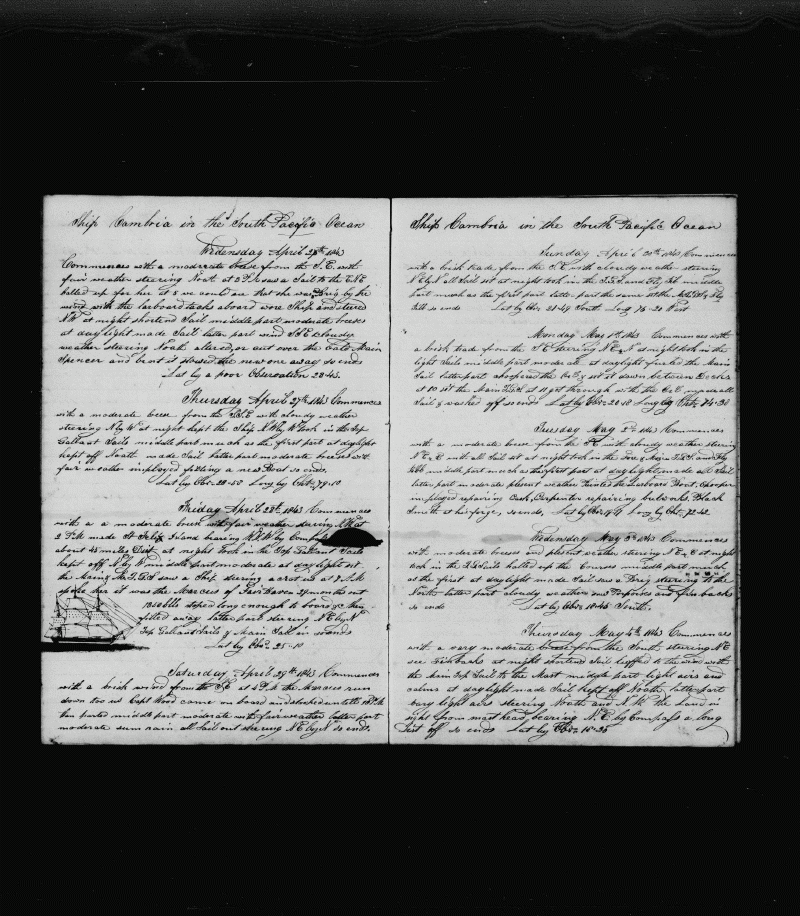 Ship Cambria in the South Pacific Ocean
Wedensday April 26th 1843
Commences with a moderate breese from the S.E. with
fair weather steering North at 2 P.M. saw a Sail to the ENE
halled up for her at 5 we could see that she was Brig by the
wind with the larboard tacks aboard wore Ship and steered
NW at night shortend Sail middle part moderate breeses
at day light made Sail latter part wind SSE cloudy
weather steering North altered or cut over the Main
Spencer and bent it stowed the new one away so ends
Lat by a poor Observation 28-43
Thursday April 27th 1843 Commences
with a moderate breese from the SSE with cloudy weather
steering N by W at night kept the Ship N W by W took in the top
Gallant Sails middle part much as the first part at daylight
kept off North made Sail latter part moderate breeses with
fair weather imployed fitting a new Boat so ends
Lat by Obs. 28-50 Long by Chr. 79-10
Friday April 28th 1843 Commences
with a a moderate breese with fair weather steering at
2 P.M. made St Felix Island bearing by Compass
about 45 miles Dist. at night took in the Top Gallant Sails
kept off N by W middle part moderate at daylight set
the Main saw a Ship steering across us at 9 A.M.
spoke her it was the Marcus of Fairhaven 29 months out
1350 bbls stoped long enough to board & then
filled away latter part steering N E by N
Top Gallant Sails & Main Sail in so ends
Lat by Obs. 25-10
Saturday April 29th 1843 Commences
with a brisk wind from the SE at 2 P.M. the Marcus run
down too us Capt Wood came on board and stoped untill 10 P.M.
then parted middle part moderate with fair weather latter part
moderate sum rain all Sail out steering N E by N so ends.
Ship Cambria in the South Pacific Ocean
Sunday April 30th 1843 Commences
with a brisk trade from the S.E. with cloudy weather steering
N E by N all Sail set at night took in the middle
part much as the first part latter part the same set the
so ends Lat by Obs. 21-49 South Long 76-20 West
Monday May 1st 1843 Commences with
a brisk trade from the SE steering N E at night took in the
light Sails middle part moderate at daylight furled the Main
Sail latter part
at 10 set the Main at 11 got through with the
Sail & washed off so ends Lat by Obs. 20-18 Long by Chr. 74-30
Tuesday May 2nd 1843 Commences
with a moderate breese from the SE with cloudy weather steering
N E with all Sail set at night took in the Fore & Main
middle part much as the first part at daylight made all Sail
latter part moderate present weather Painted the Larboard Boat, Cooper
imployed repairing Cask, Carpenter repairing bulworks, Black
Smith at his forge, so ends, Lat by Obs. Long by Chr. 72-42
Wedensday May 3rd 1843 Commences
with moderate breeses and plesent weather steering N E at night
took in the Sails halled up the Courses middle part much
as the first at daylight made Sail saw a Brig steering to the
North latter part cloudy weather saw Porpoises and finbacks
so ends Lat by Obs. 18-45 South.
Thursday May 4th 1843 Commences
with a very moderate breese from the South steering N E
see Finbacks at night shortend Sail luffed to the wind with
the Main Top Sail to the Mast middle part light airs and
calms at daylight made Sail kept off North, latter part
very light airs steering North and N.W. the Land in
sight from mast head bearing N. E. by Compass a long
Dist off so ends Lat by Obs. 18-25